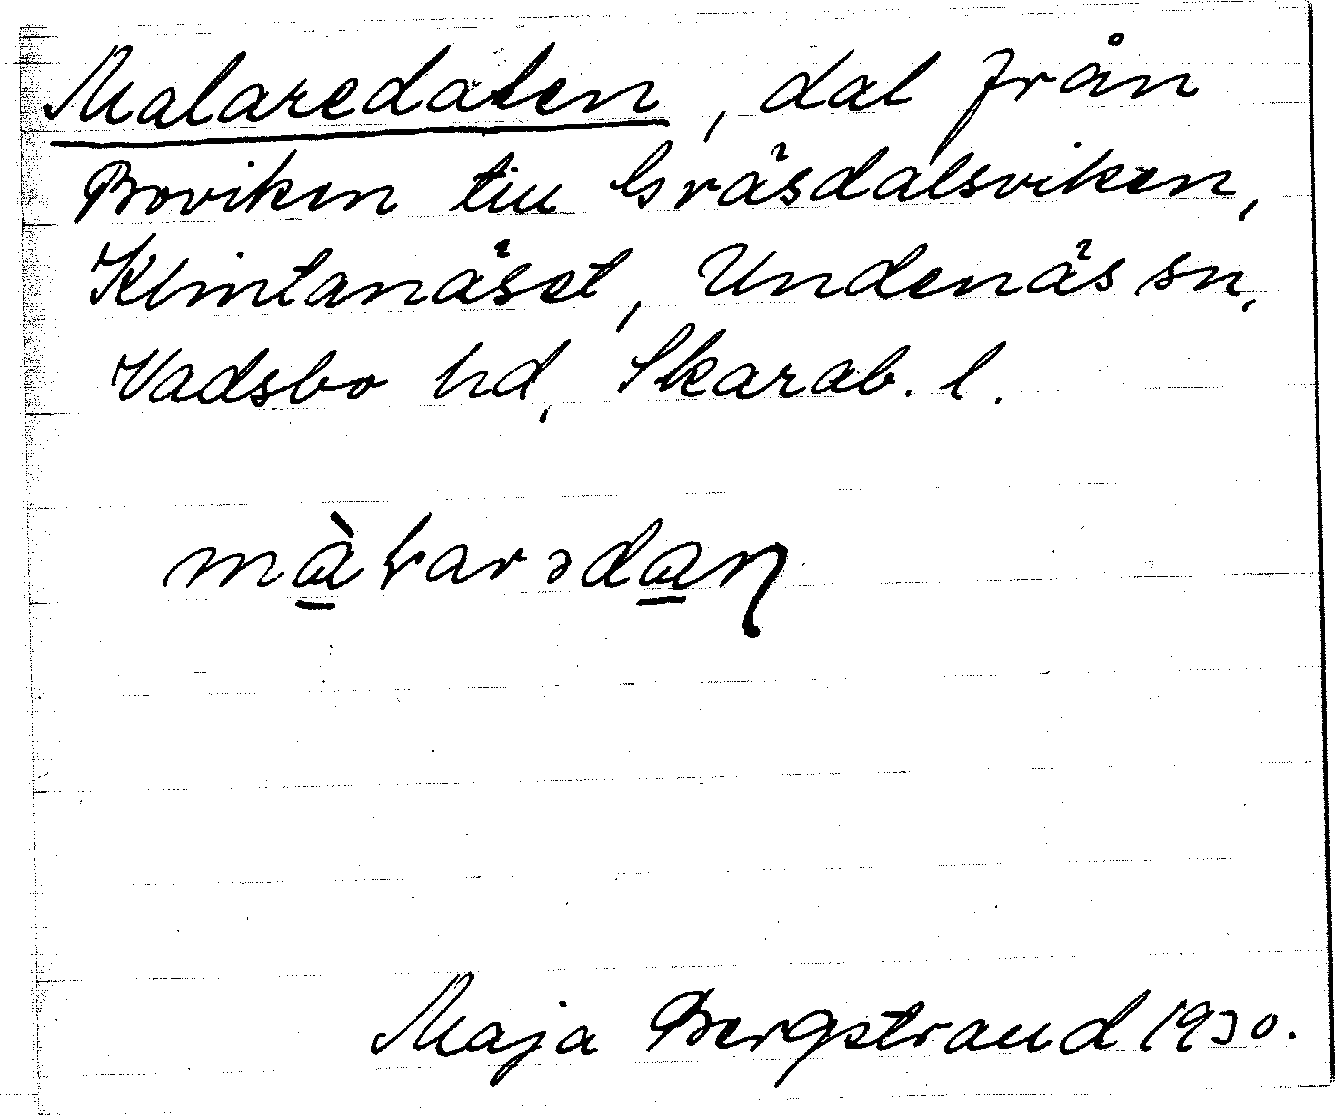 Malaredalen, dal från
Boviken till Gräsdalsviken,
Klintanäset, Undenäs sn,
Vadsbo hd, Skarab. l.
Maja Bergstrand 1930.